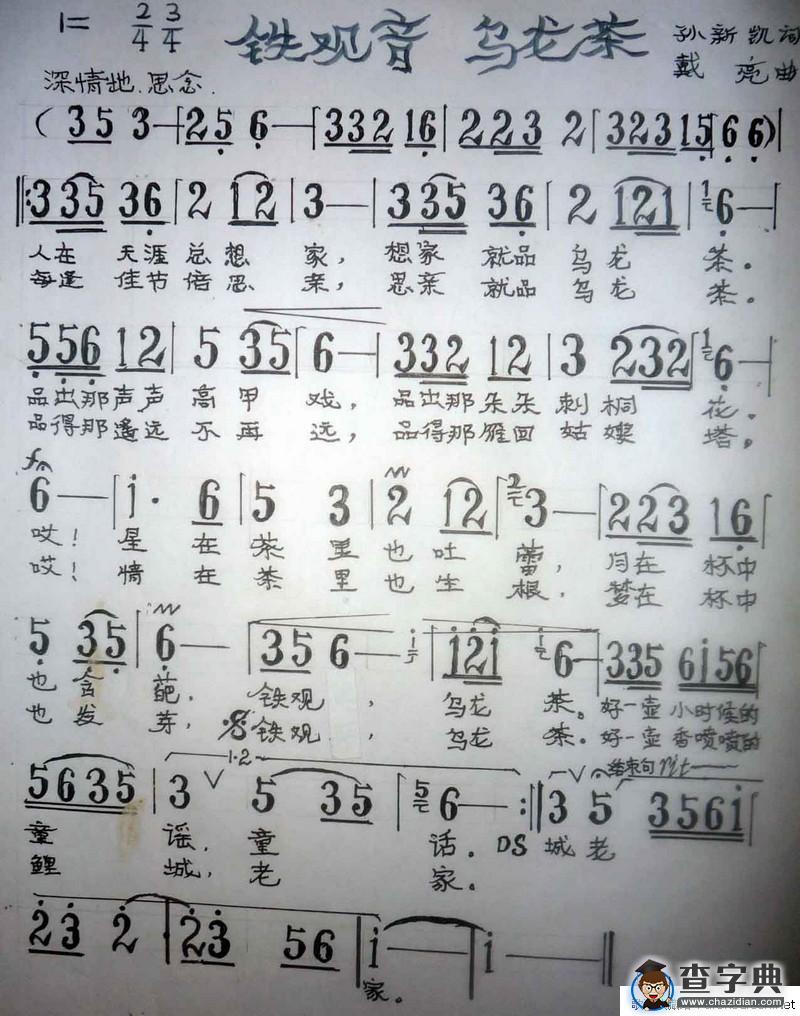 1= 2/4 3/4 铁观音 乌龙茶 孙新凯词
深情地.思念. 戴亮曲
( 35 3— | 25 6— | 332 16 | 2223 2 | 32315 | 66) |
‖: 335 36 | 2 12 | 3— | 335 36 | 2 121 | 6— |
人在 天涯 总想 家, 想家 就品 乌龙 茶。
每逢 佳节 倍思 亲, 思亲 就品 乌龙 茶.
556 12 | 5 35 | 6— | 332 12 | 3 232 | 6— |
品出那声声 高甲 戏, 品出那朵朵 刺桐 花.
品得那遥远 不再 远, 品得那雁回 姑嫂 塔,
6— | i· 6 | 5 3 | 2 12 | 3— | 223 16 |
哎! 星 在 茶 里 也吐 蕾, 月在 杯中
哎! 情 在 茶 里 也生 根, 梦在 杯中
5 35 | 6— | 35 6— | i2i 6— | 335 6i56 |
也 含 葩. 铁观 , 乌龙 茶。好一壶 小时候的
也 发 芽, 铁观 , 乌龙 茶.好一壶 香喷喷的
1·2 结束句 rit
5635 | 3 5 35 | 6— :‖ 3 5 356i |
童 谣, 童 话. DS 城 老
鲤 城, 老 家.
23 2 | 23 56 | i— | i— ‖
家。
查字典
www.chazidian.com